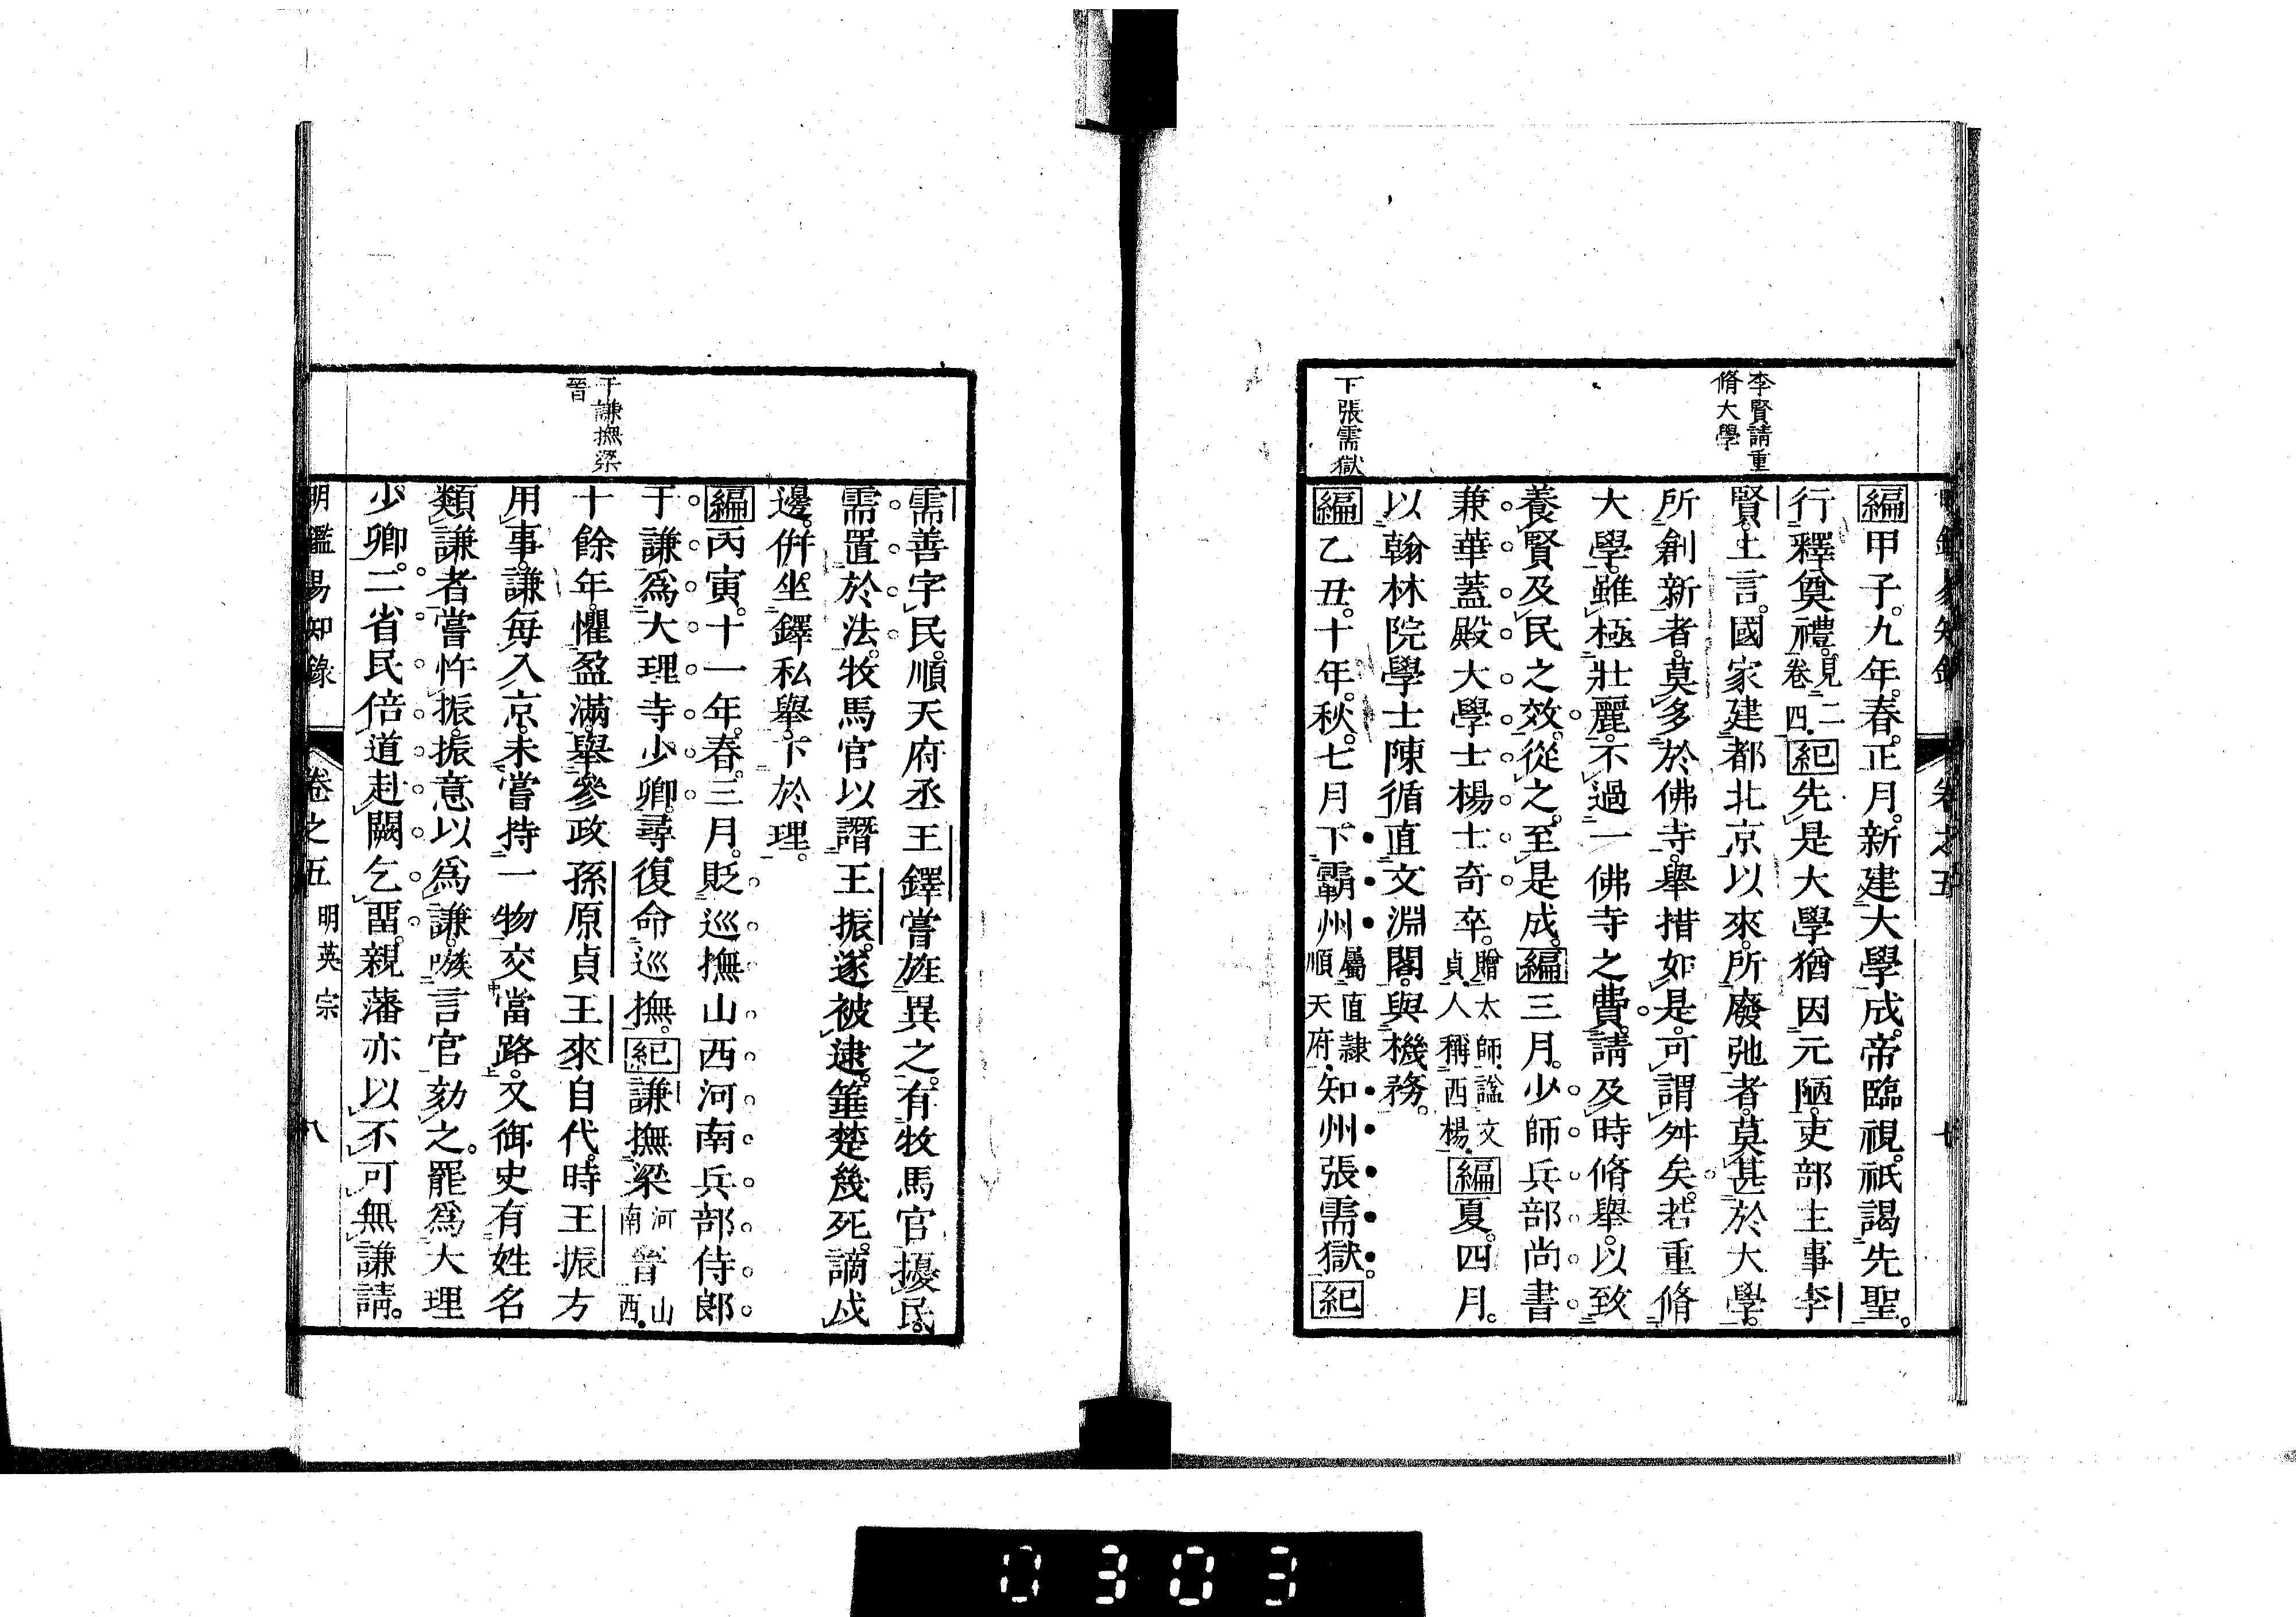 李賢請重
脩大學
下張需獄
編甲子。九年。春。正月。新建大學成。帝臨視。祇謁先聖。
行釋奠禮。見二卷四。紀先是大學猶因元陋。吏部主事李
賢上言。國家建都北京以來。所廢弛者。莫甚於大學。
所創新者。莫多於佛寺。舉措如是。可謂舛矣。若重脩
大學。雖極壯麗。不過一佛寺之費。請及時脩舉。以致
養賢及民之效。從之。至是成。編三月。少師兵部尚書
兼華蓋殿大學士楊士奇卒。贈太師。諡文貞。人稱西楊。編夏。四月。
以翰林院學士陳循直文淵閣。與機務。
編乙丑。十年。秋。七月。下霸州屬直隸順天府。知州張需獄。紀
于謙撫梁
晉
需善字民。順天府丞王鐸嘗旌異之。有牧馬官擾民。
需置於法。牧馬官以譖王振。遂被逮。箠楚幾死。謫戍
邊。併坐鐸私舉。下於理。
編丙寅。十一年。春。三月。貶巡撫山西河南兵部侍郎
于謙爲大理寺少卿。尋復命巡撫。紀謙撫梁河南晉山西。
十餘年。懼盈滿。舉參政孫原貞王來自代。時王振方
用事。謙每入京。未嘗持一物交當路。又御史有姓名
類謙者。嘗忤振。振意以爲謙。嗾言官劾之。罷爲大理
少卿。二省民倍道赴闕乞畱。親藩亦以不可無謙請。
明鑑易知錄 卷之五 明英宗 八
0303